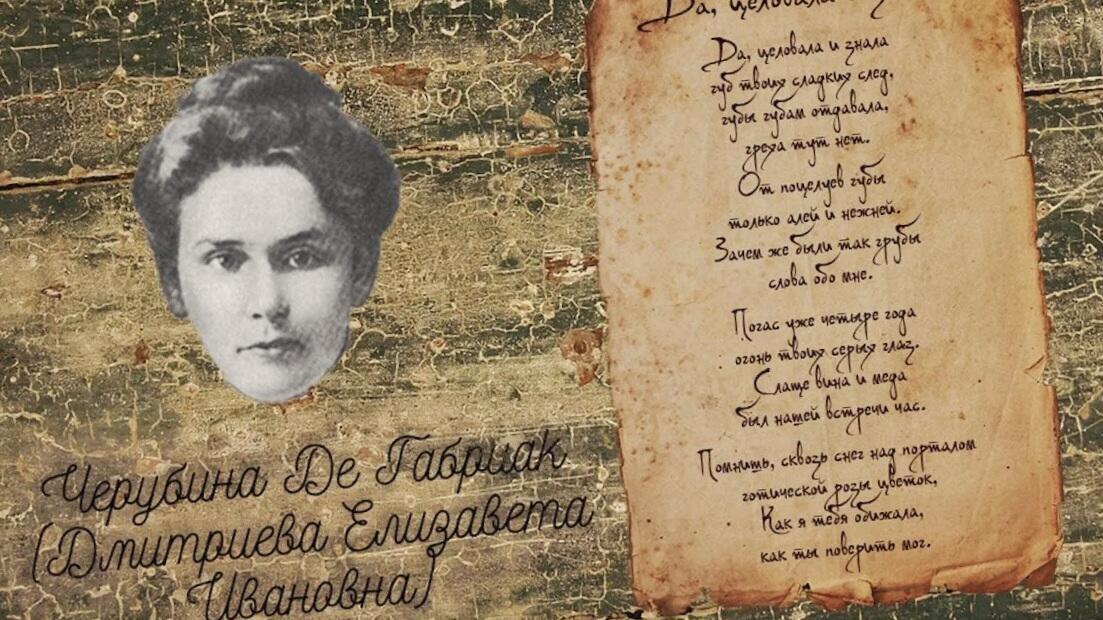 Черубина Де Габриак
(Дмитриева Елизавета
Ивановна)
Да, целовала
Да, целовала и знала
губ твоих сладких след,
губы губам отдавала,
греха тут нет.
От поцелуев губы
только алей и нежней.
Зачем же были так грубы
слова обо мне.
Погас уже четыре года
огонь твоих серых глаз.
Слаще вина и меда
был нашей встречи час.
Помнишь, сквозь снег над порталом
готической розы цветок,
Как я тебя обижала,
как ты поверить мог.